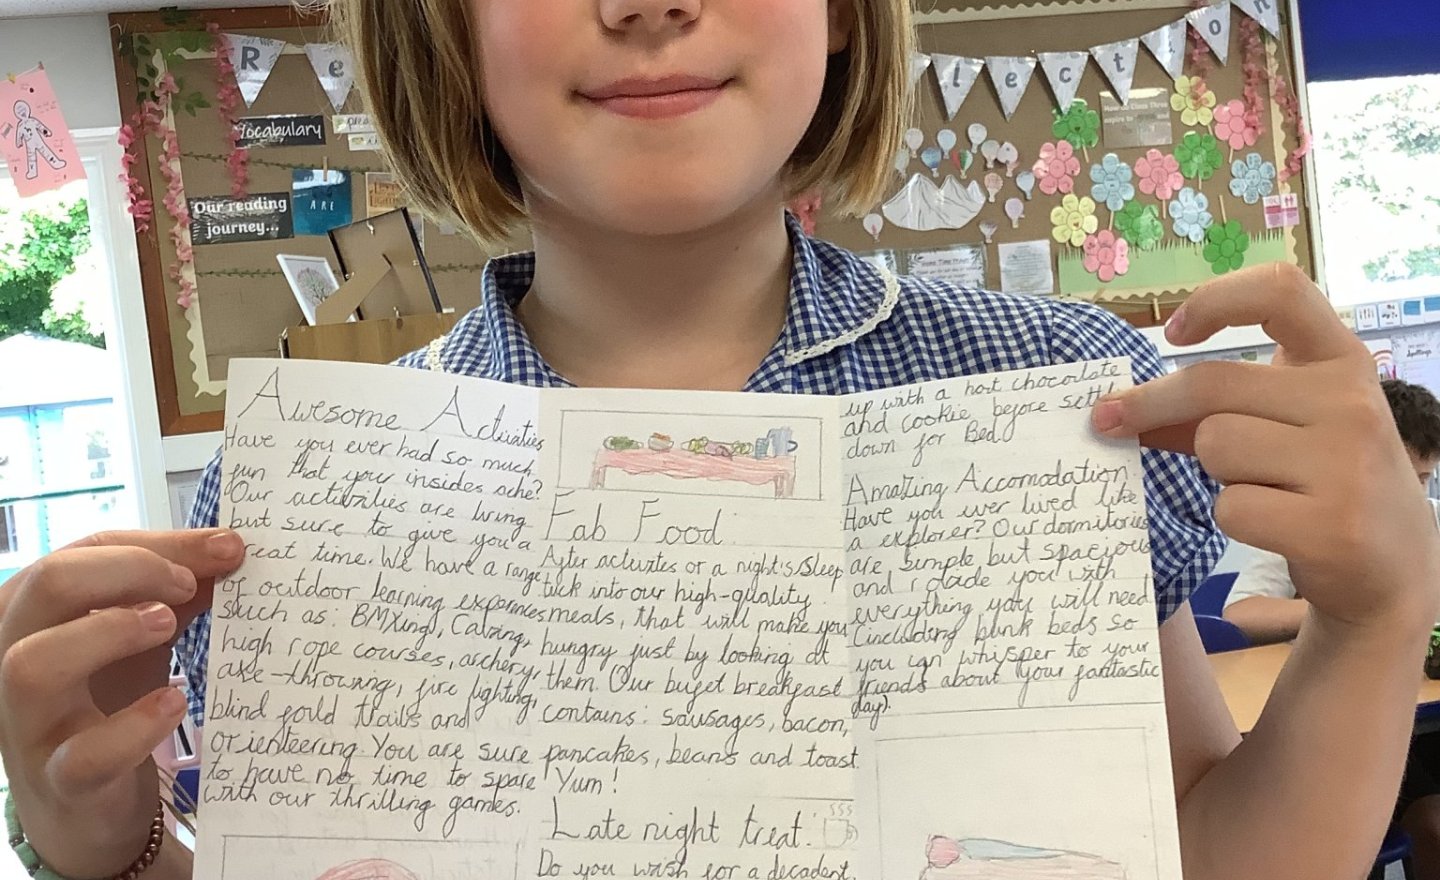 Re
lection
Vocabulary
Our reading
journey...
ARE
How do Class Three
aspire to
Awesome Activities
Have you ever had so much
fun that your insides ache?
Our activities are tiring
but sure to give you a
great time. We have a range
of outdoor learning experinces
such as: BMXing, Caving,
high rope courses, archery,
axe-throwing, fire lighting,
blind fould trails and
orienteering. You are sure
to have no time to spare
with our thrilling games.
Fab Food
After activites or a night's sleep
tuck into our high-quality
meals, that will make you
hungry just by looking at
them. Our bufet breakfast
contains: sausages, bacon,
pancakes, beans and toast
Yum!
Late night treat:
Do you wish for a decadent
up with a hot chocolate
and cookie before settl
down for Bed
Amazing Accomodation
Have you ever lived like
a explorer? Our dormitories
are simple but spacious
and provide you with
everything you will need
(including bunk beds so
you can whisper to your
friends about your fantastic
day).